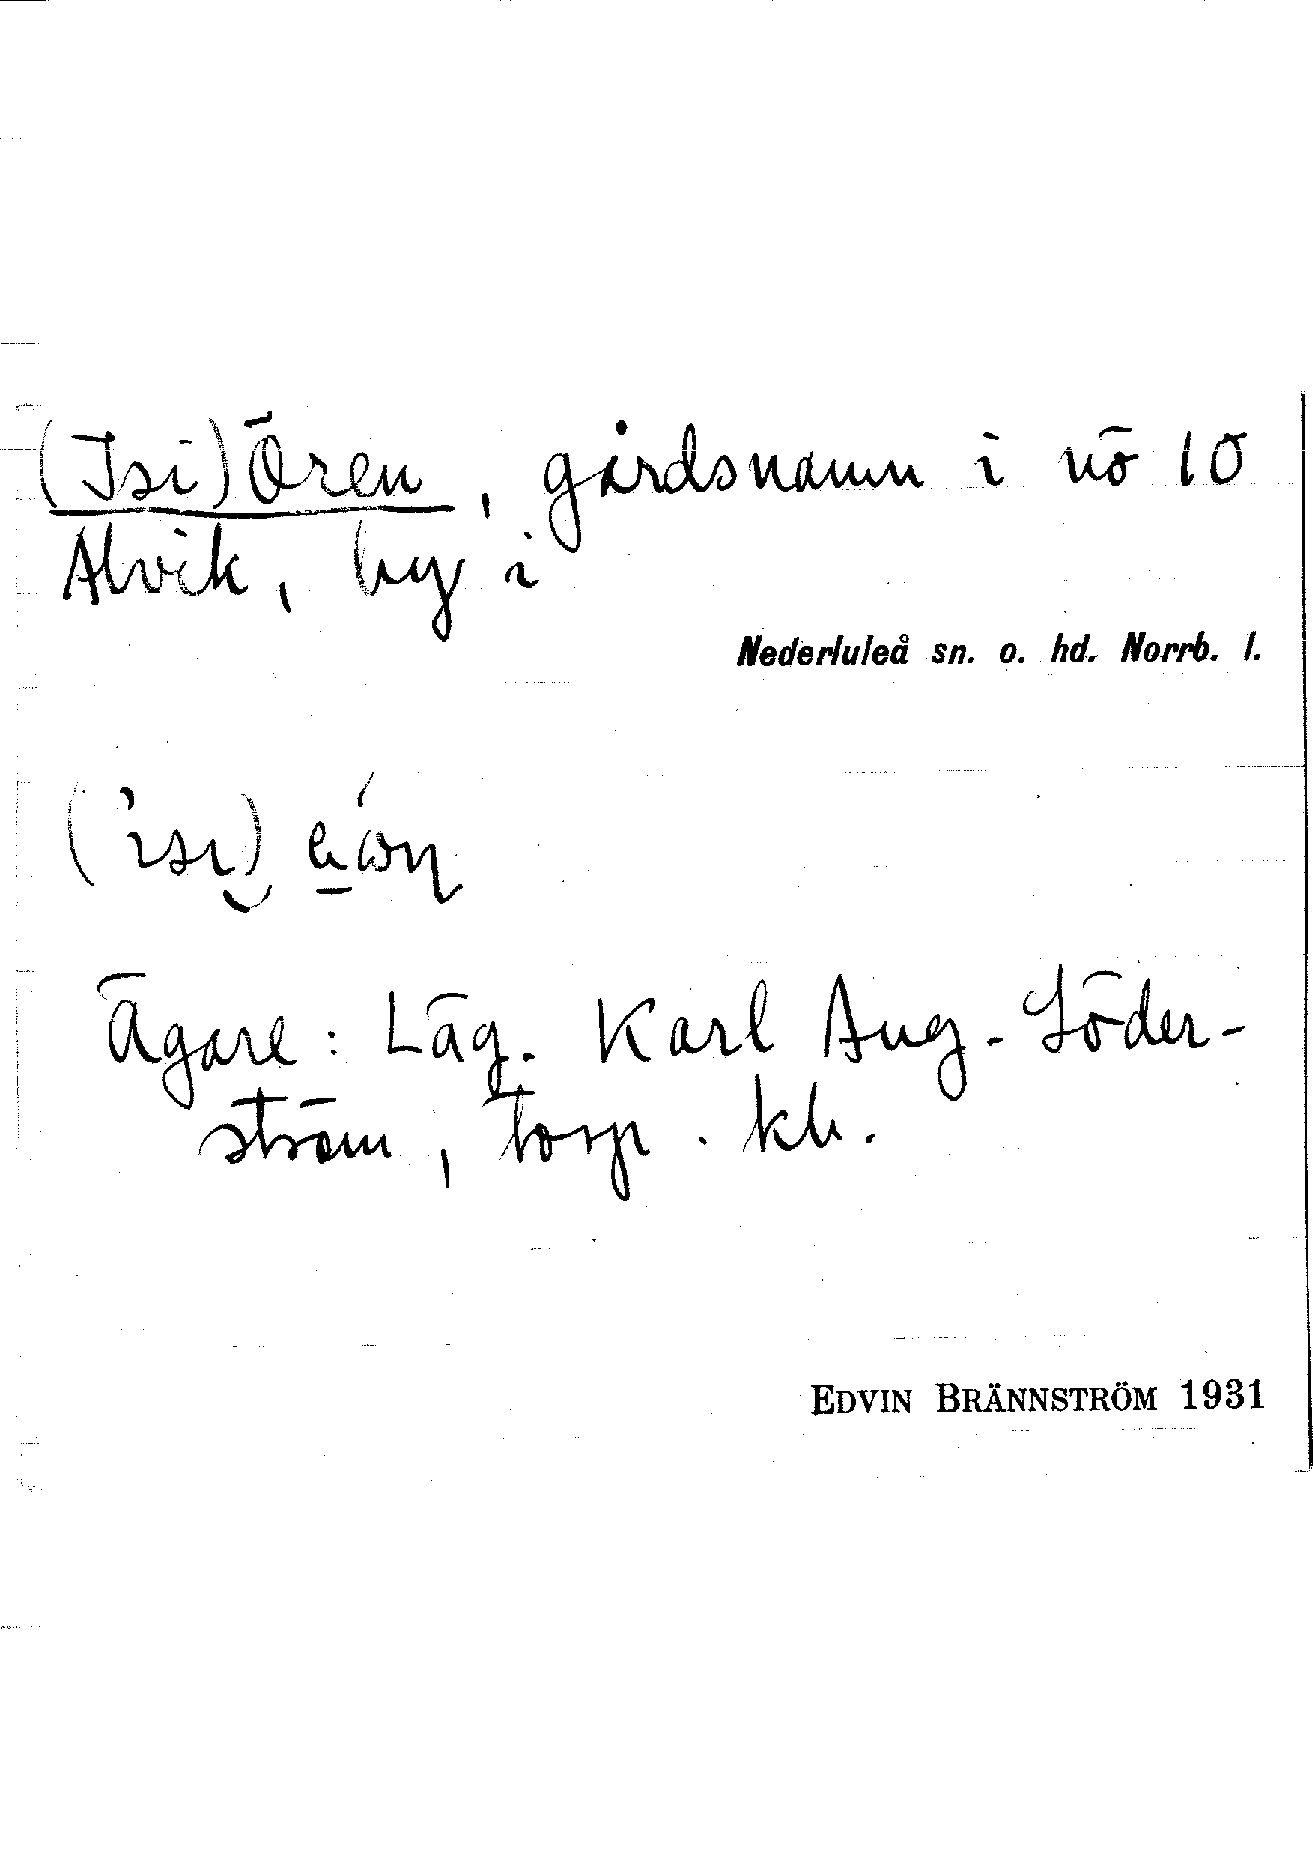 (Isi)Ören, gårdsnamn i nö 10
Alvik, by i
Nederluleå sn. o. hd. Norrb. l.
Ägare: Läg. Karl Aug. Söder-
ström, torp. kb.
EDVIN BRÄNNSTRÖM 1931